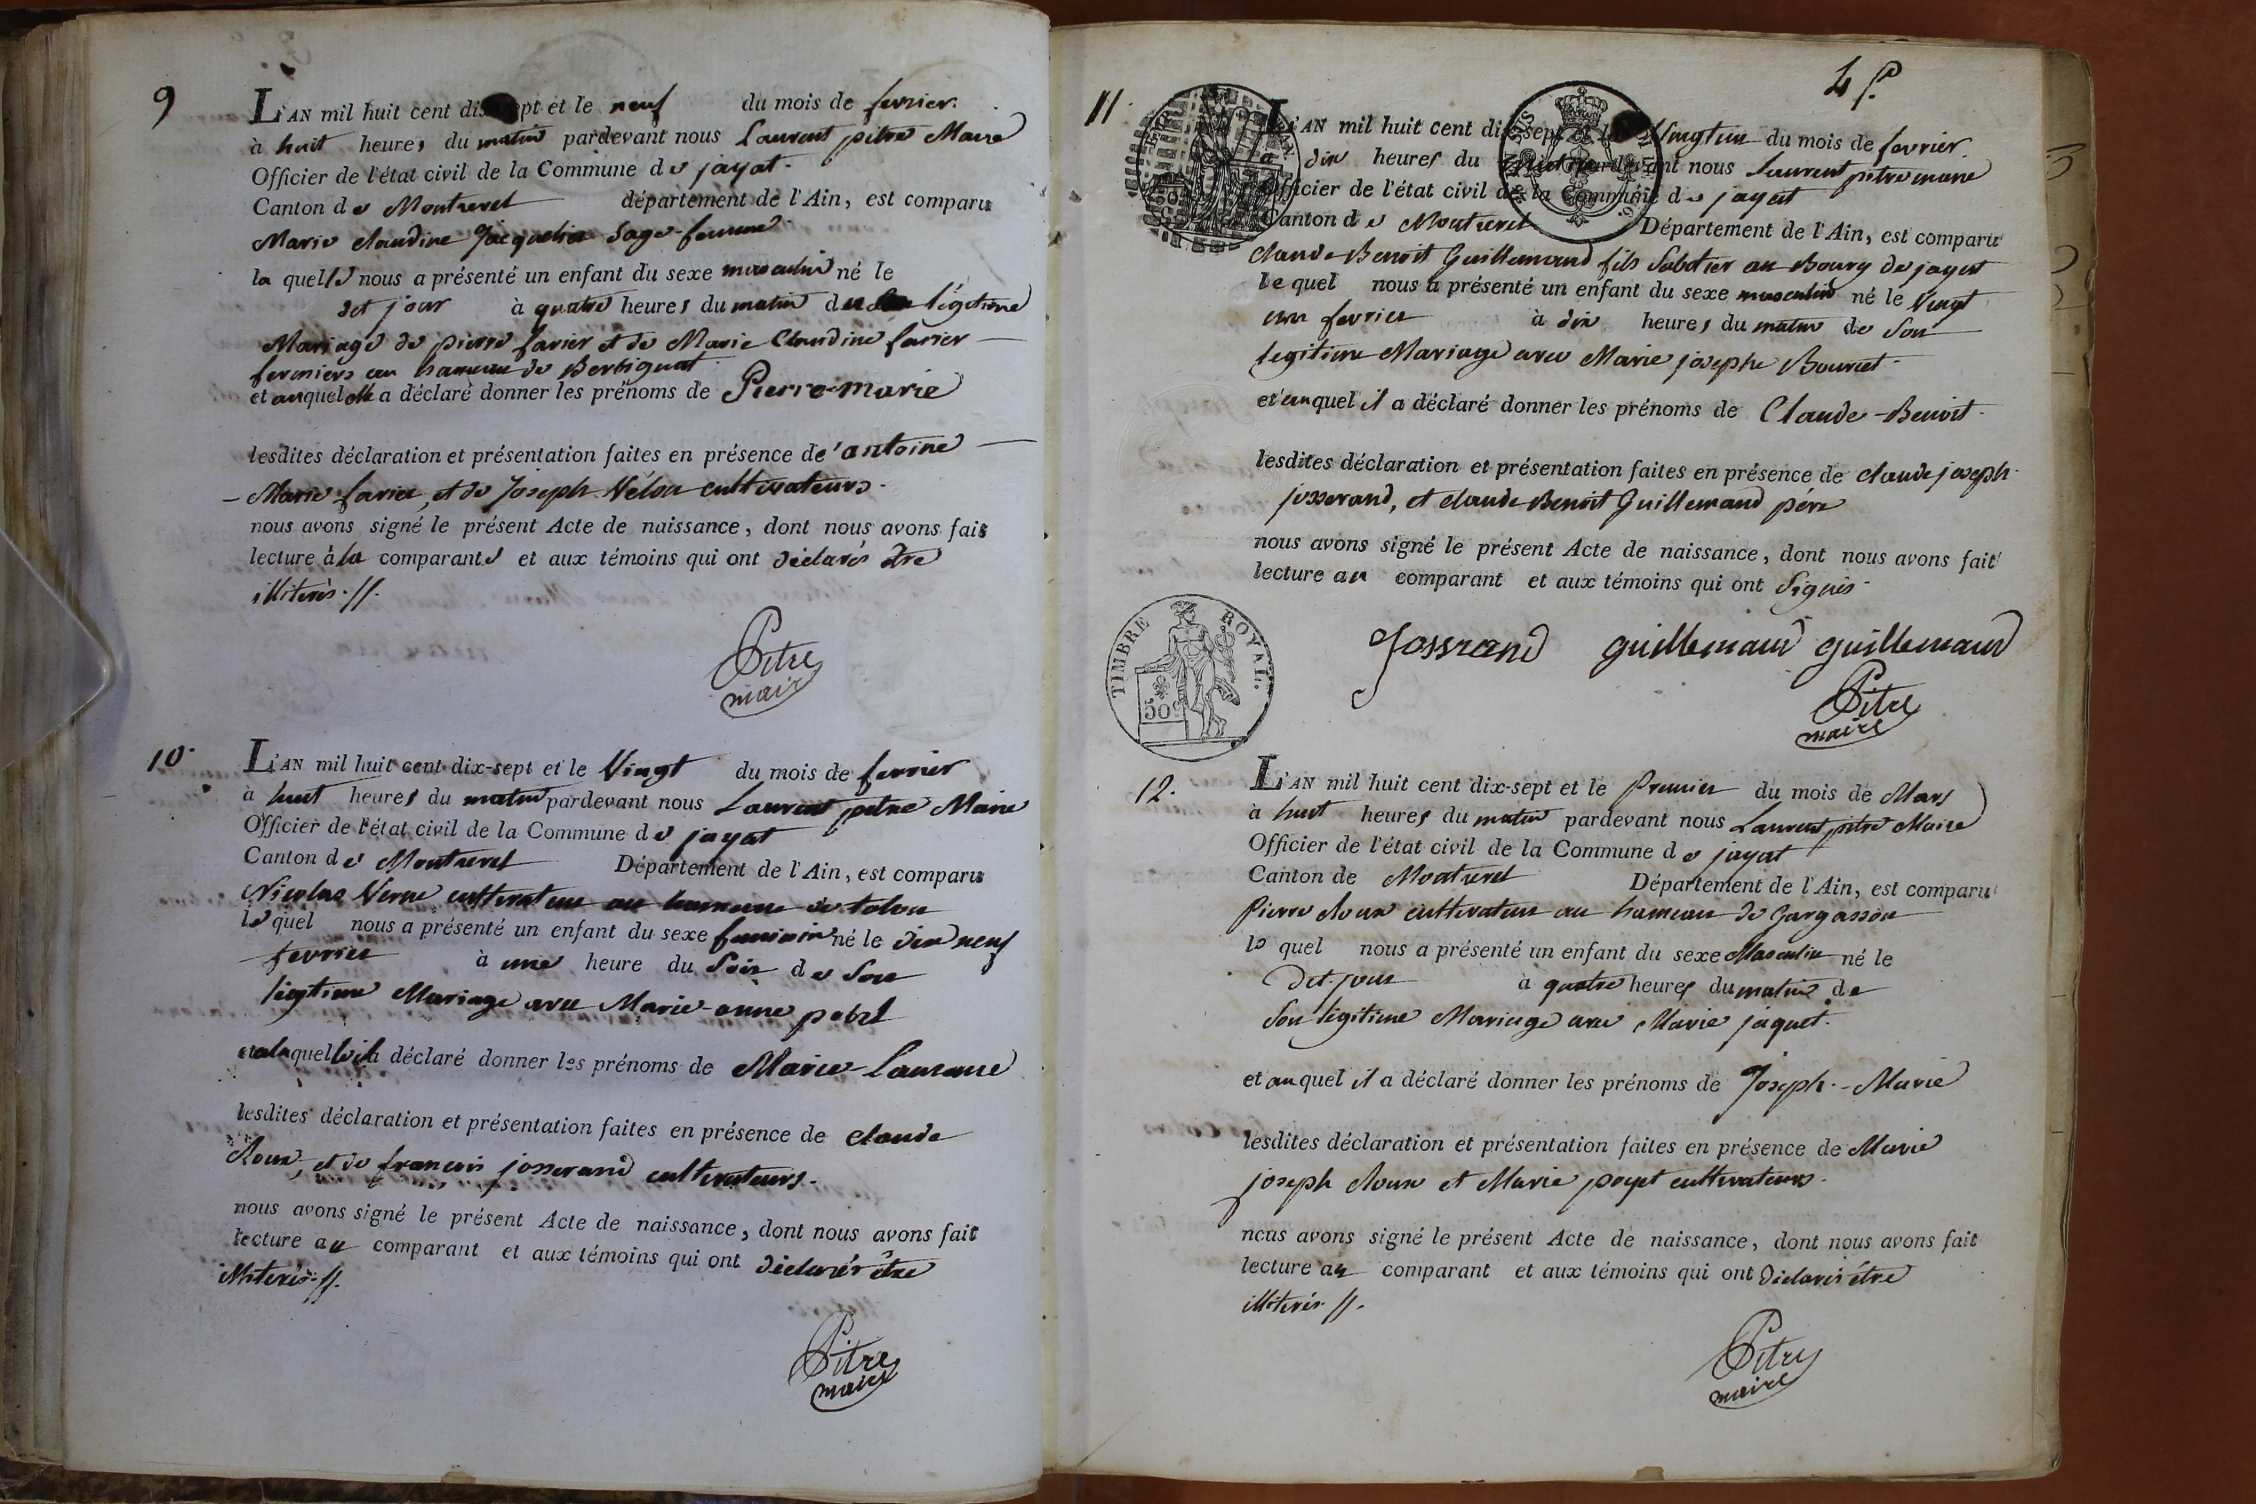 9
L'AN mil huit cent dix-sept et le neuf du mois de fevrier.
à huit heures du matin pardevant nous Laurent pitre Maire
Officier de l'état civil de la Commune de jayat.
Canton de Montrevel département de l'Ain, est comparu
Marie claudine Jacquelin Sage-femme
la quelle nous a présenté un enfant du sexe masculin né le
dit jour à quatre heures du matin du légitime
Mariage de pierre farier et de Marie Claudine farier
fermiers au hameau de
et auquel elle a déclaré donner les prénoms de Pierre-marie
lesdites déclaration et présentation faites en présence de antoine
Marie farier, et de Joseph Vélon cultivateurs.
nous avons signé le présent Acte de naissance, dont nous avons fait
lecture à la comparante et aux témoins qui ont déclarés être
illiterés.//.
Pitre
maire
10.
L'AN mil huit cent dix-sept et le Vingt du mois de fevrier
à huit heures du matin pardevant nous Laurent pitre Maire
Officier de l'état civil de la Commune de jayat
Canton de Montrevel Département de l'Ain, est comparu
Nicolas cultivateur au hameau de
le quel nous a présenté un enfant du sexe feminin né le dix neuf
fevrier à une heure du Soir de Son
légitime Mariage avec Marie-anne
et a laquelle il a déclaré donner les prénoms de Marie-Laurence
lesdites déclaration et présentation faites en présence de claude
cloux, et de francois josserand cultivateurs.
nous avons signé le présent Acte de naissance, dont nous avons fait
lecture au comparant et aux témoins qui ont déclarés être
illiterés.//.
Pitre
maire
4
11.
L'AN mil huit cent dix-sept et le Vingt un du mois de fevrier
à dix heures du pardevant nous Laurent pitre maire
Officier de l'état civil de la Commune de jayat
Canton de Montrevel Département de l'Ain, est comparu
claude-Benoit Guillemaud fils Sabotier au Bourg de jayat
le quel nous a présenté un enfant du sexe masculin né le Vingt
un fevrier à dix heures du matin de Son
legitime Mariage avec Marie josephe
et auquel il a déclaré donner les prénoms de Claude-Benoit.
lesdites déclaration et présentation faites en présence de claude joseph
josserand, et claude Benoit Guillemaud pére
nous avons signé le présent Acte de naissance, dont nous avons fait
lecture au comparant et aux témoins qui ont Signés.
TIMBRE ROYAL.
50c
Josserand guillemaud guillemaud
Pitre
maire
12.
L'AN mil huit cent dix-sept et le Premier du mois de Mars
à huit heures du matin pardevant nous Laurent pitre Maire
Officier de l'état civil de la Commune de jayat
Canton de Montrevel Département de l'Ain, est comparu
Pierre cloux cultivateur au hameau de Gargasson
le quel nous a présenté un enfant du sexe Masculin né le
dit jour à quatre heures du matin de
Son légitime Mariage avec Marie jaquet.
et auquel il a déclaré donner les prénoms de Joseph-Marie
lesdites déclaration et présentation faites en présence de Marie
joseph cloux et Marie poyet cultivateurs.
nous avons signé le présent Acte de naissance, dont nous avons fait
lecture au comparant et aux témoins qui ont déclarés être
illiterés.//.
Pitre
maire